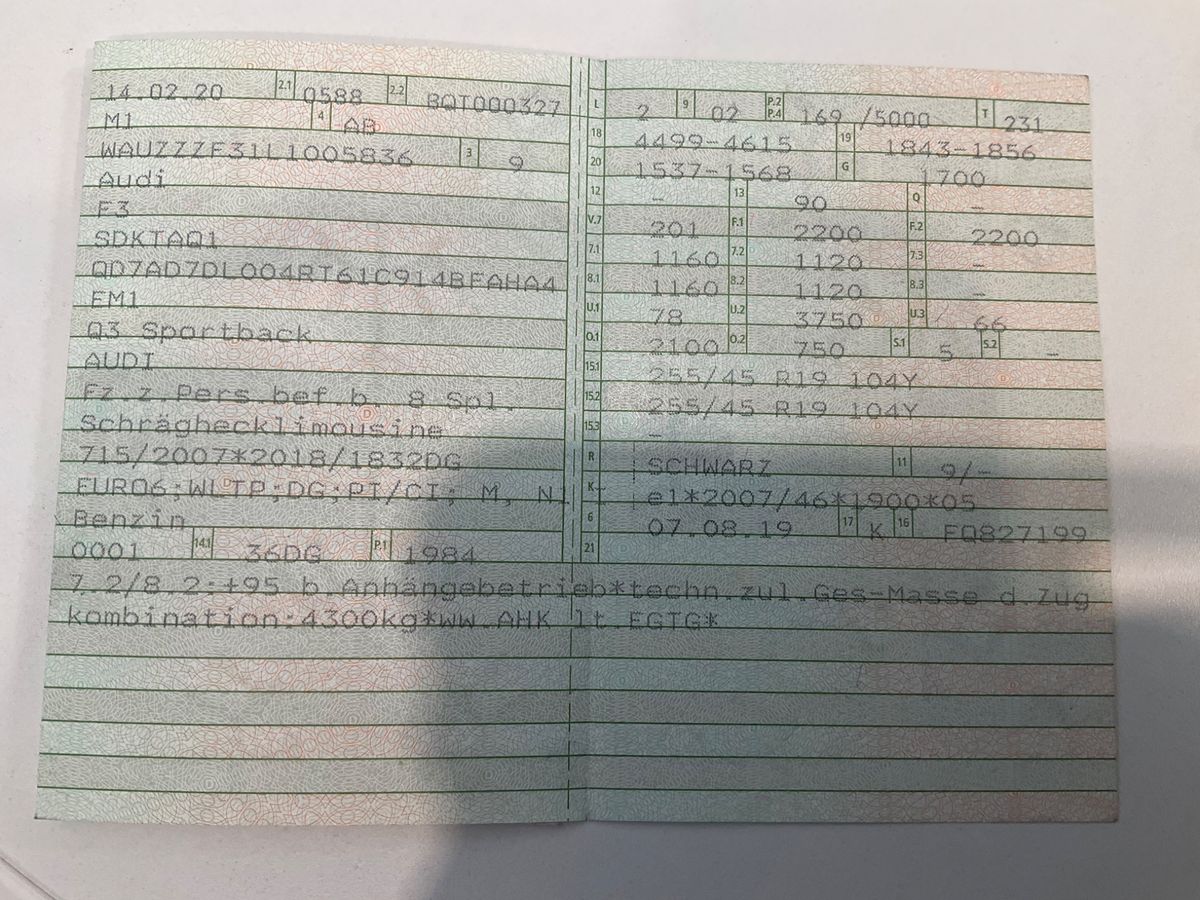 14.02.20 2.1 0588 2.2 BQT000327
M1 4 AB
WAUZZZF31L1005836 3 9
Audi
F3
SDKTAQ1
QD7AD7DL004RT61C914BFAHA4
FM1
Q3 Sportback
AUDI
Fz.z.Pers.bef.b. 8 Spl.
Schräghecklimousine
715/2007*2018/1832DG
EURO6;WLTP;DG;PI/CI; M, N1 I
Benzin
0001 14.1 36DG P.1 1984
L 2 9 02 P.2 P.4 169 /5000 T 231
18 4499-4615 19 1843-1856
20 1537-1568 G 1700
12 - 13 90 Q -
V.7 201 F.1 2200 F.2 2200
7.1 1160 7.2 1120 7.3 -
8.1 1160 8.2 1120 8.3 -
U.1 78 U.2 3750 U.3 66
O.1 2100 O.2 750 S.1 5 S.2 -
15.1 255/45 R19 104Y
15.2 255/45 R19 104Y
15.3 -
R SCHWARZ 11 9/-
K e1*2007/46*1900*05
6 07.08.19 17 K 16 FQ827199
21
7.2/8.2:+95 b.Anhängebetrieb*techn.zul.Ges-Masse d.Zug
kombination:4300kg*ww.AHK lt.EGTG*